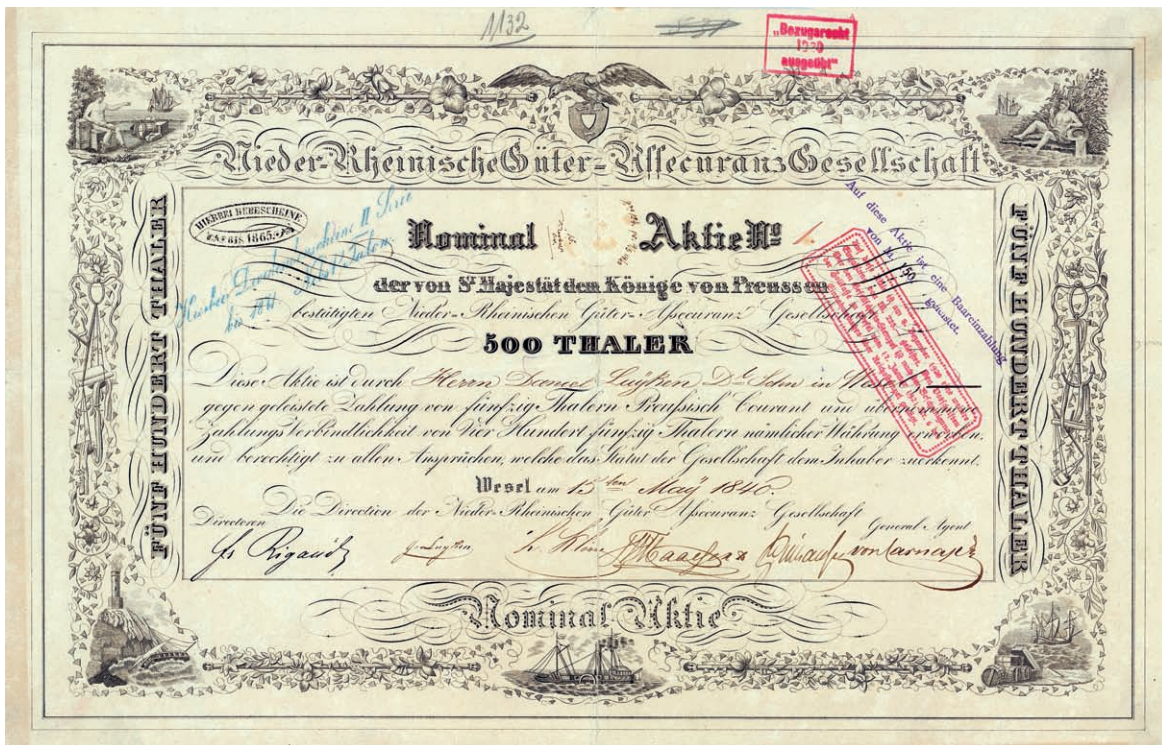 1132
531
„Bezugsrecht
1920
ausgeübt“
Nieder-Rheinische Güter-Assecuranz Gesellschaft
HIERBEI DIVIDENDENSCHEINE
BIS 1865.
Hierbei Dividendenscheine II Serie
bis 18 nebst Talon
Nominal Aktie No 1.
Auf diese Aktie ist eine Baareinzahlung
von M. 150 geleistet.
der von Sr. Majestät dem Könige von Preussen
bestätigten Nieder-Rheinischen Güter-Assecuranz Gesellschaft
500 THALER
Diese Aktie ist durch Herrn Daniel Luyken, Dl. Sohn in Wesel,
gegen geleistete Zahlung von fünfzig Thalern Preußisch Courant und übernommene
Zahlungs Verbindlichkeit von Vier Hundert fünfzig Thalern nämlicher Währung erworben,
und berechtigt zu allen Ansprüchen, welche das Statut der Gesellschaft dem Inhaber zuerkennt.
Wesel am 15ten Maÿ 1840.
Die Direction der Nieder-Rheinischen Güter Assecuranz Gesellschaft
Directoren
General Agent
Fs Rigaud
J. Luyken
von Carnap
FÜNF HUNDERT THALER
FÜNF HUNDERT THALER
Nominal Aktie